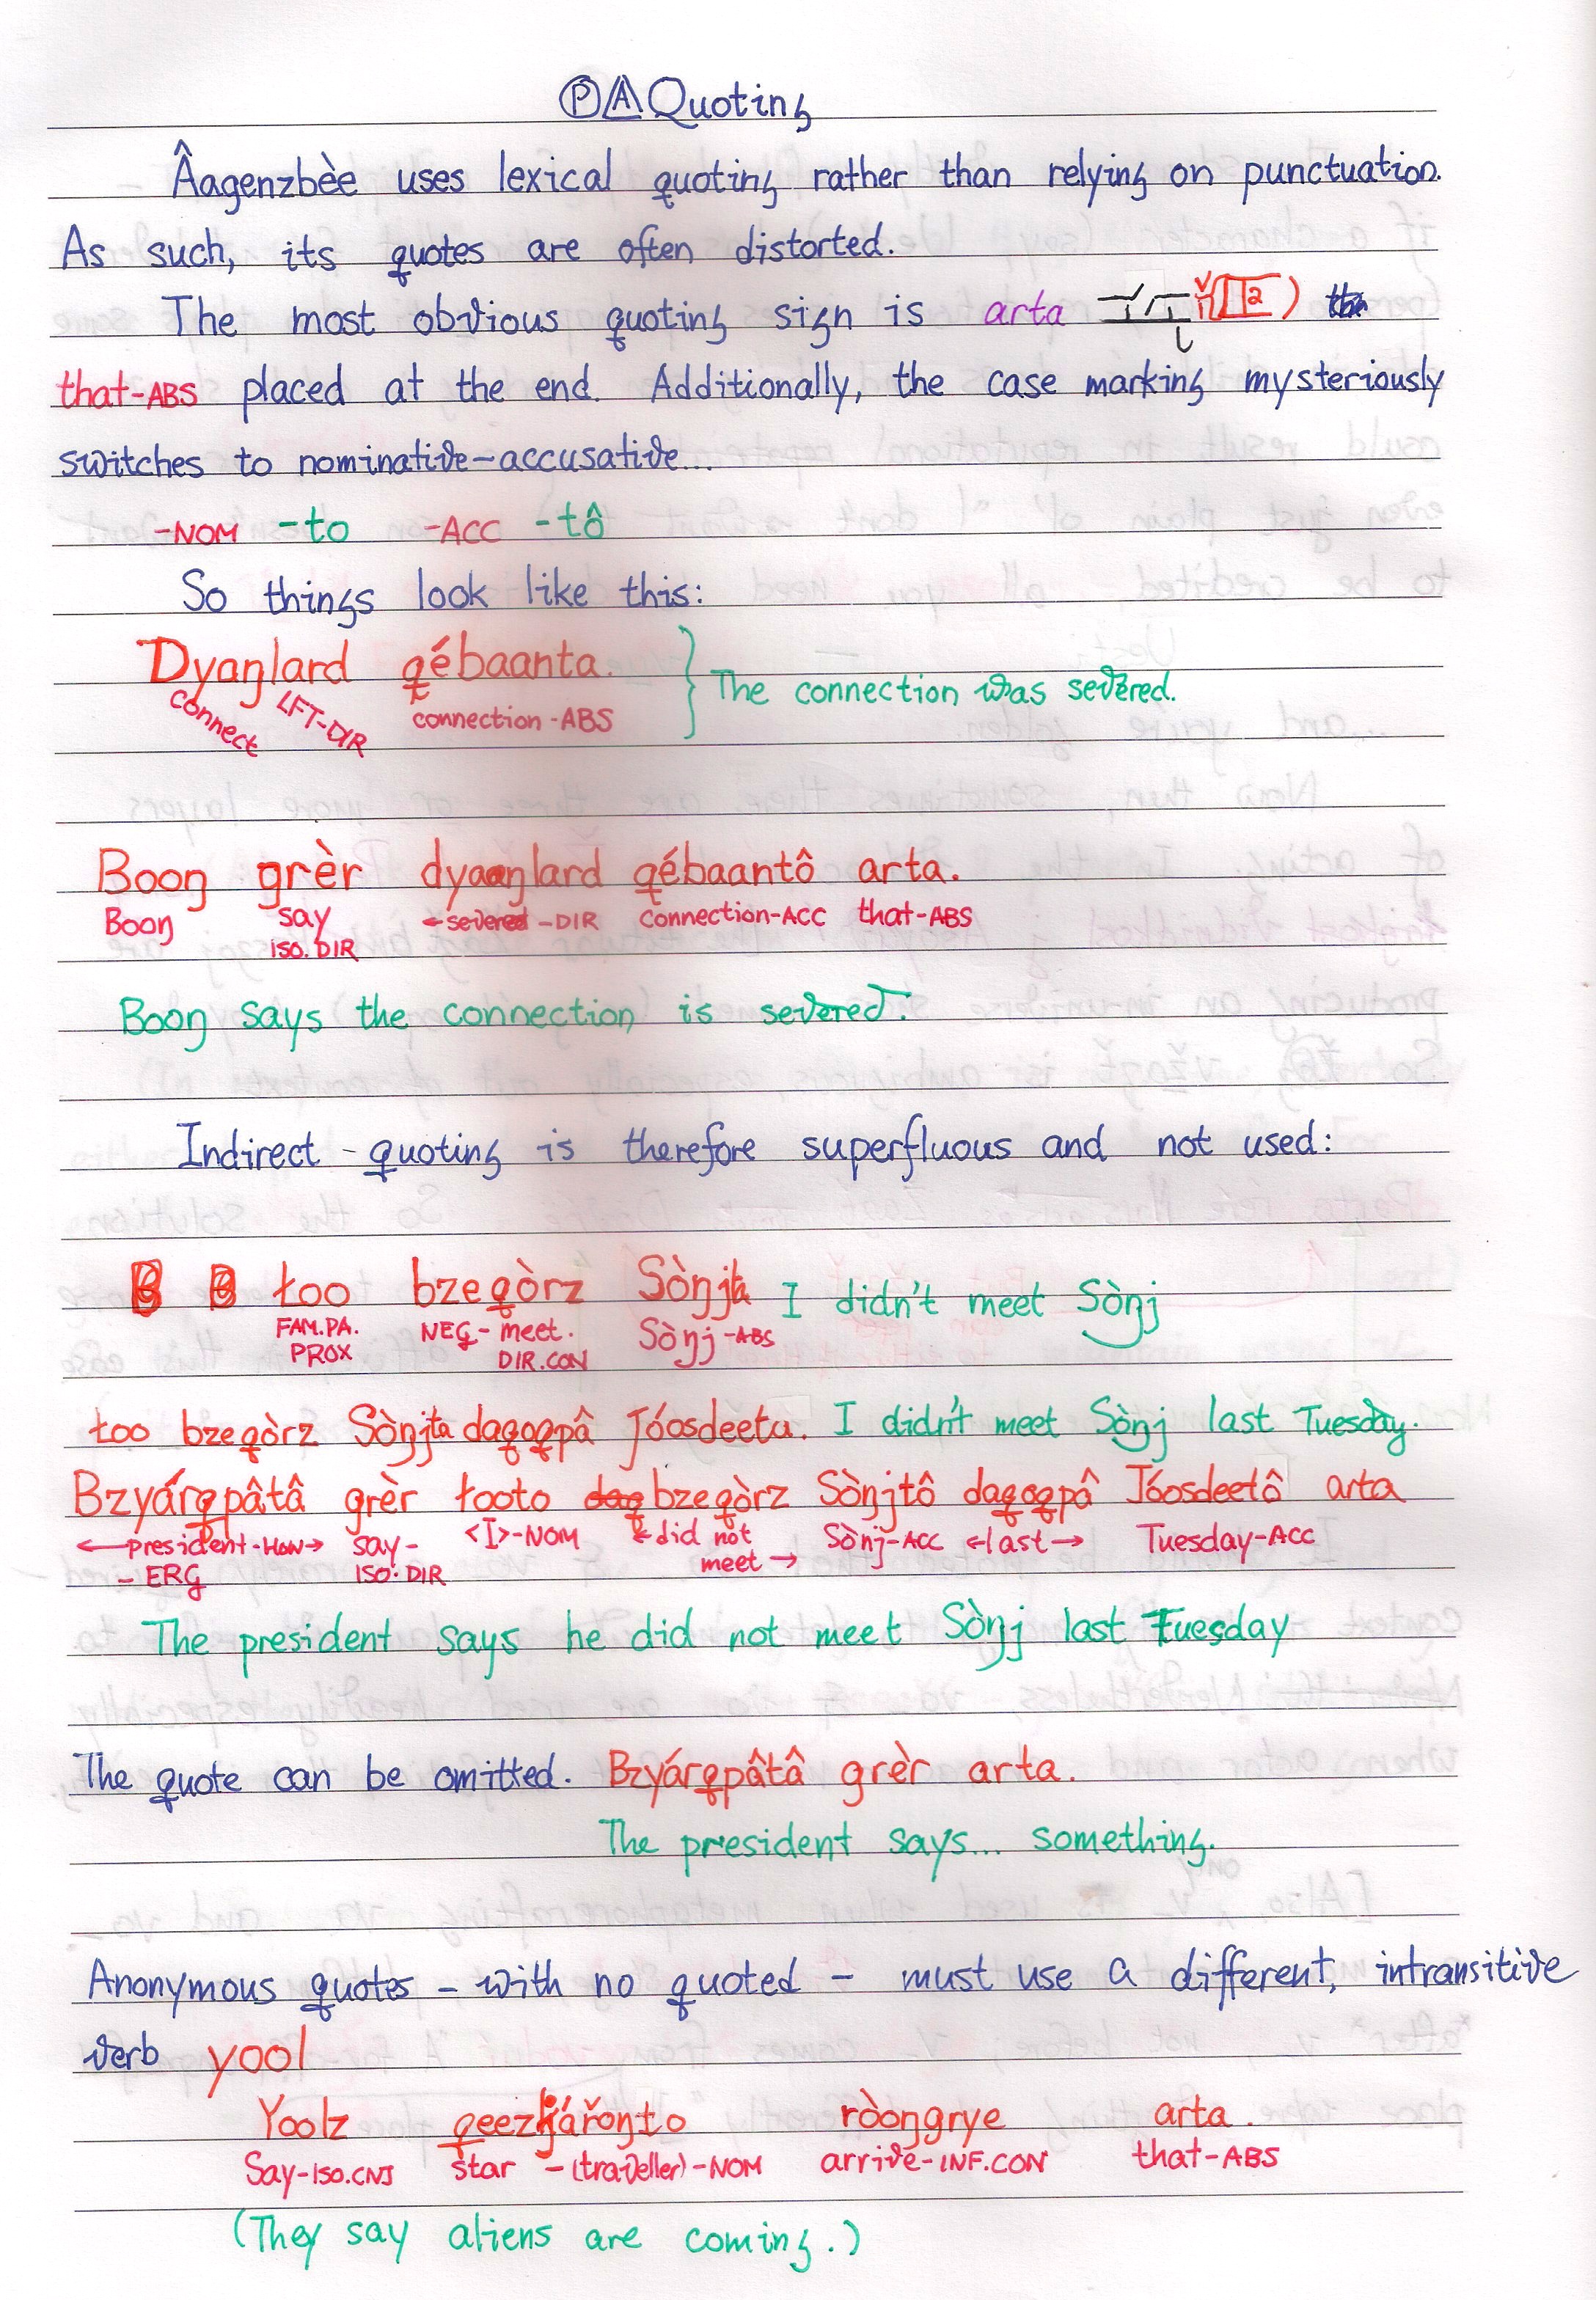 Ⓟ Quoting
Âagenzbèe uses lexical quoting rather than relying on punctuation.
As such, its quotes are often distorted.
The most obvious quoting sign is arta
that-ABS placed at the end. Additionally, the case marking mysteriously
switches to nominative-accusative...
-NOM -to -ACC -tô
So things look like this:
Dyaŋlard qébaanta. } The connection was severed.
connect LFT-DIR connection-ABS
Booŋ grèr dyaaŋlard qébaantô arta.
Booŋ say ←severed-DIR connection-ACC that-ABS
ISO.DIR
Booŋ says the connection is severed.
Indirect-quoting is therefore superfluous and not used:
łoo bzeqòrz Sòŋjta I didn't meet Sòŋj
FAM.PA. NEG-meet. Sòŋj-ABS
PROX DIR.CON
łoo bzeqòrz Sòŋjta daqoqpâ Jóosdeeta. I didn't meet Sòŋj last Tuesday.
Bzyárqpâtâ grèr łooto bzeqòrz Sòŋjtô daqoqpâ Jóosdeetô arta
←president-HON→ say- <I>-NOM ←did not Sòŋj-ACC ←last→ Tuesday-ACC
-ERG ISO.DIR meet→
The president says he did not meet Sòŋj last Tuesday
The quote can be omitted. Bzyárqpâtâ grèr arta.
The president says... something.
Anonymous quotes - with no quoted - must use a different, intransitive
verb yool
Yoolz qeezkářoŋto ròoŋgrye arta.
Say-ISO.CNJ star -(traveller)-NOM arrive-INF.CON that-ABS
(They say aliens are coming.)